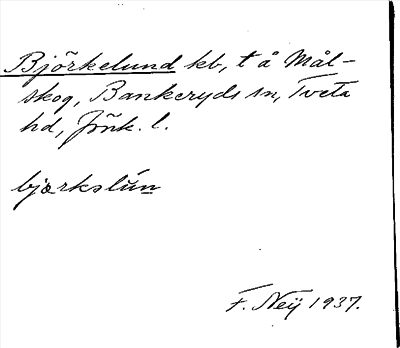 Björkelund kb, t å Mål-
skog, Bankeryds sn, Tveta
hd, Jönk. l.
bjærkslún
F. Neij 1937.